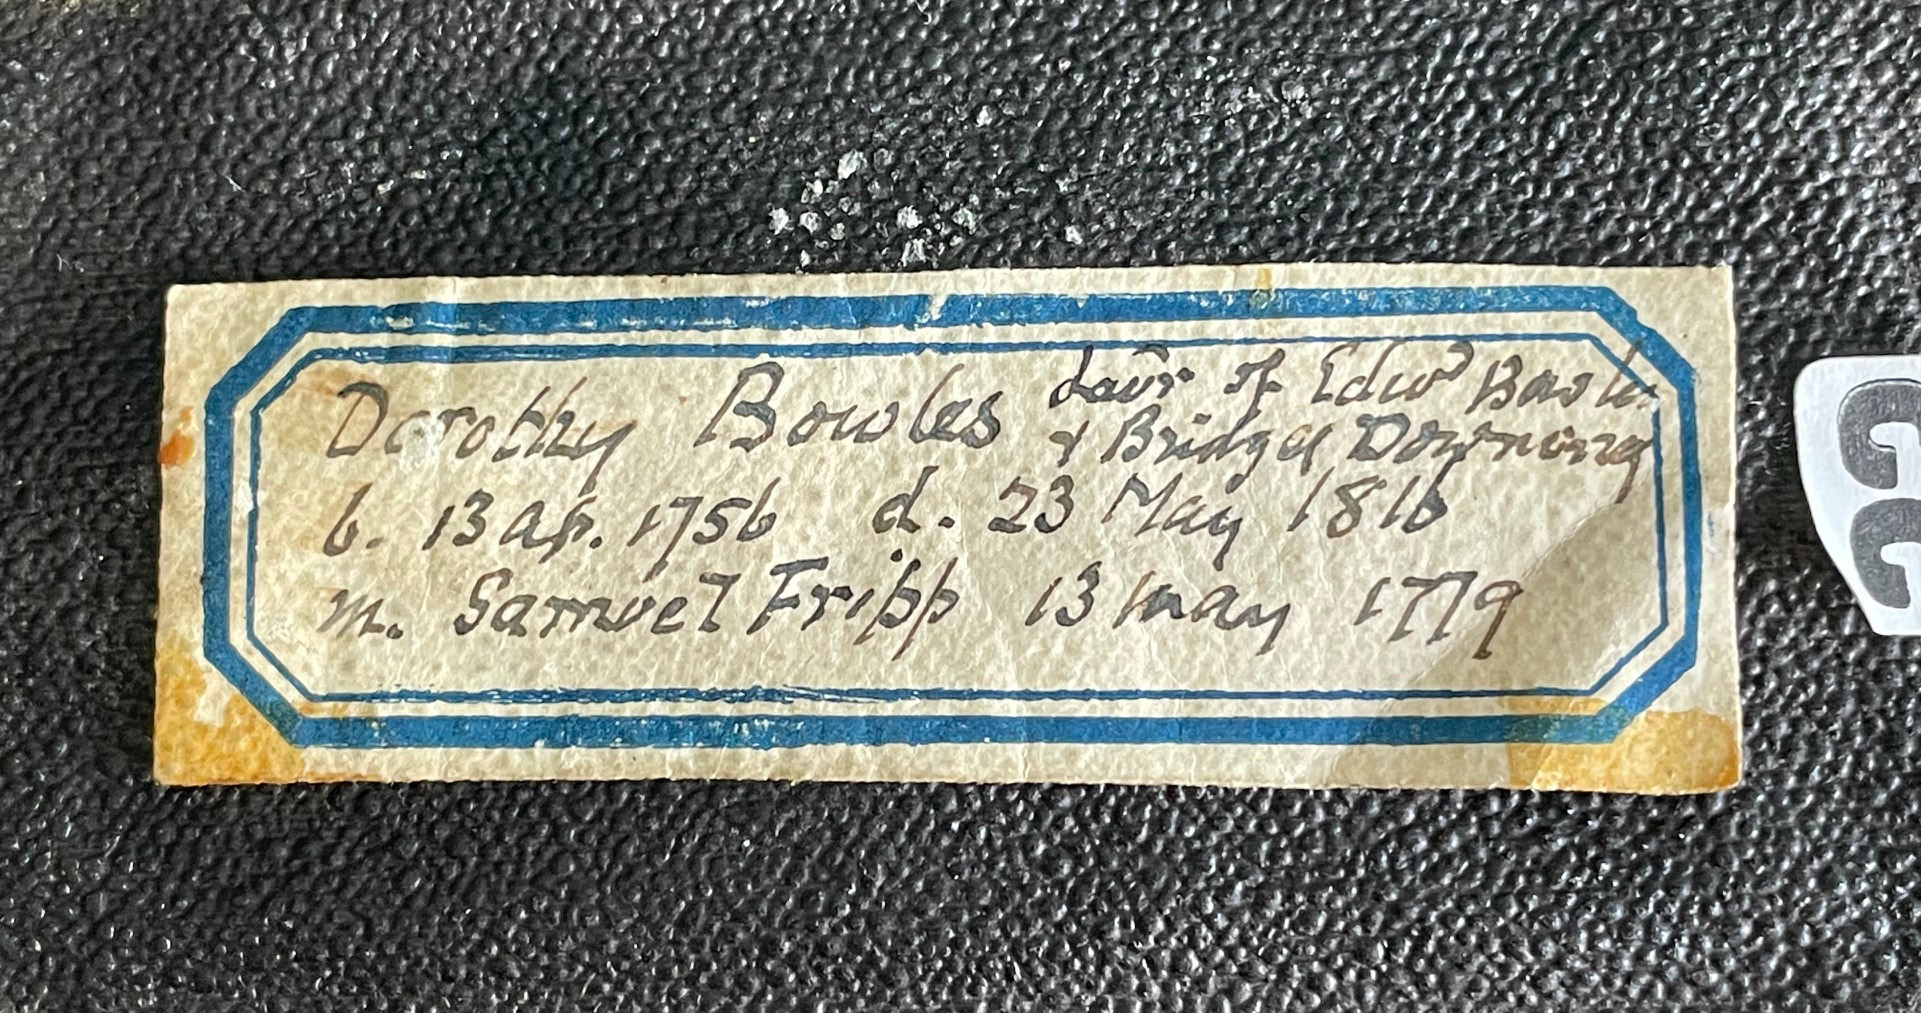 Dorothy Bowles daur of Edwd
& Bridget Downing
b. 13 ap. 1756 d. 23 May 1816
m. Samuel Fripp 13 may 1779